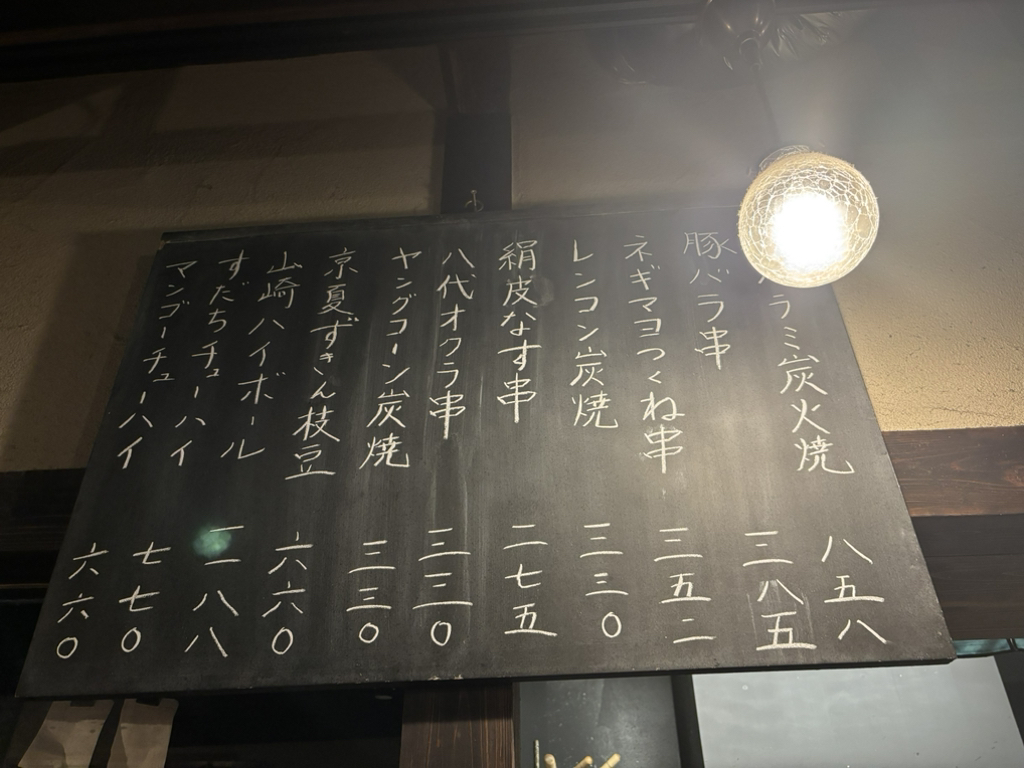 ラミ炭火焼 八五八
豚バラ串 三八五
ネギマヨつくね串 三五二
レンコン炭焼 三三〇
絹皮なす串 二七五
八代オクラ串 三三〇
ヤングコーン炭焼 三三〇
京夏ずきん枝豆 六六〇
山崎ハイボール 一一八八
すだちチューハイ 七七〇
マンゴーチューハイ 六六〇